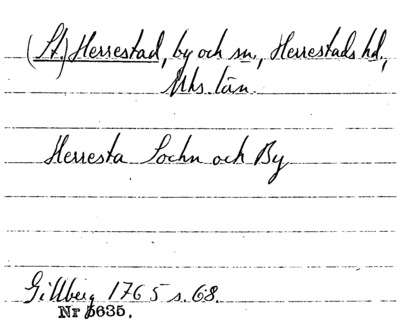 (St.) Herrestad, by och sn, Herrestads hd.,
Mhs. län.
Herresta Sochn och By
Gillberg 1765 s. 68.
Nr 5635.